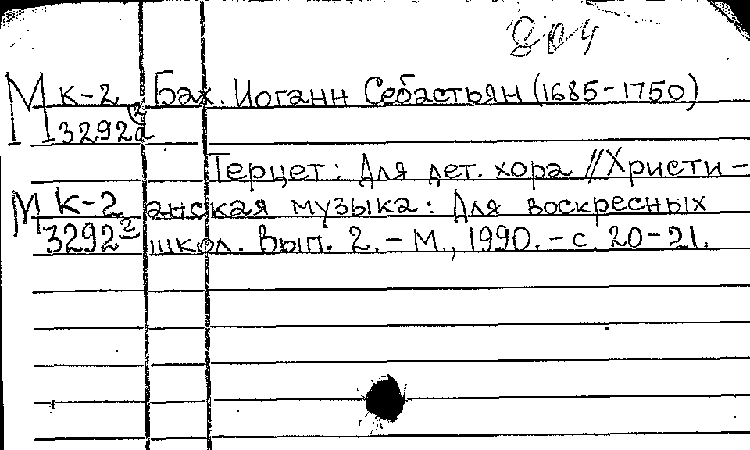 804
М к-2 Бах. Иоганн Себастьян (1685-1750)
3292
Терцет: Для дет. хора // Христи-
М к-2 анская музыка: Для воскресных
3292 школ. Вып. 2. - М., 1990. - с 20-21.